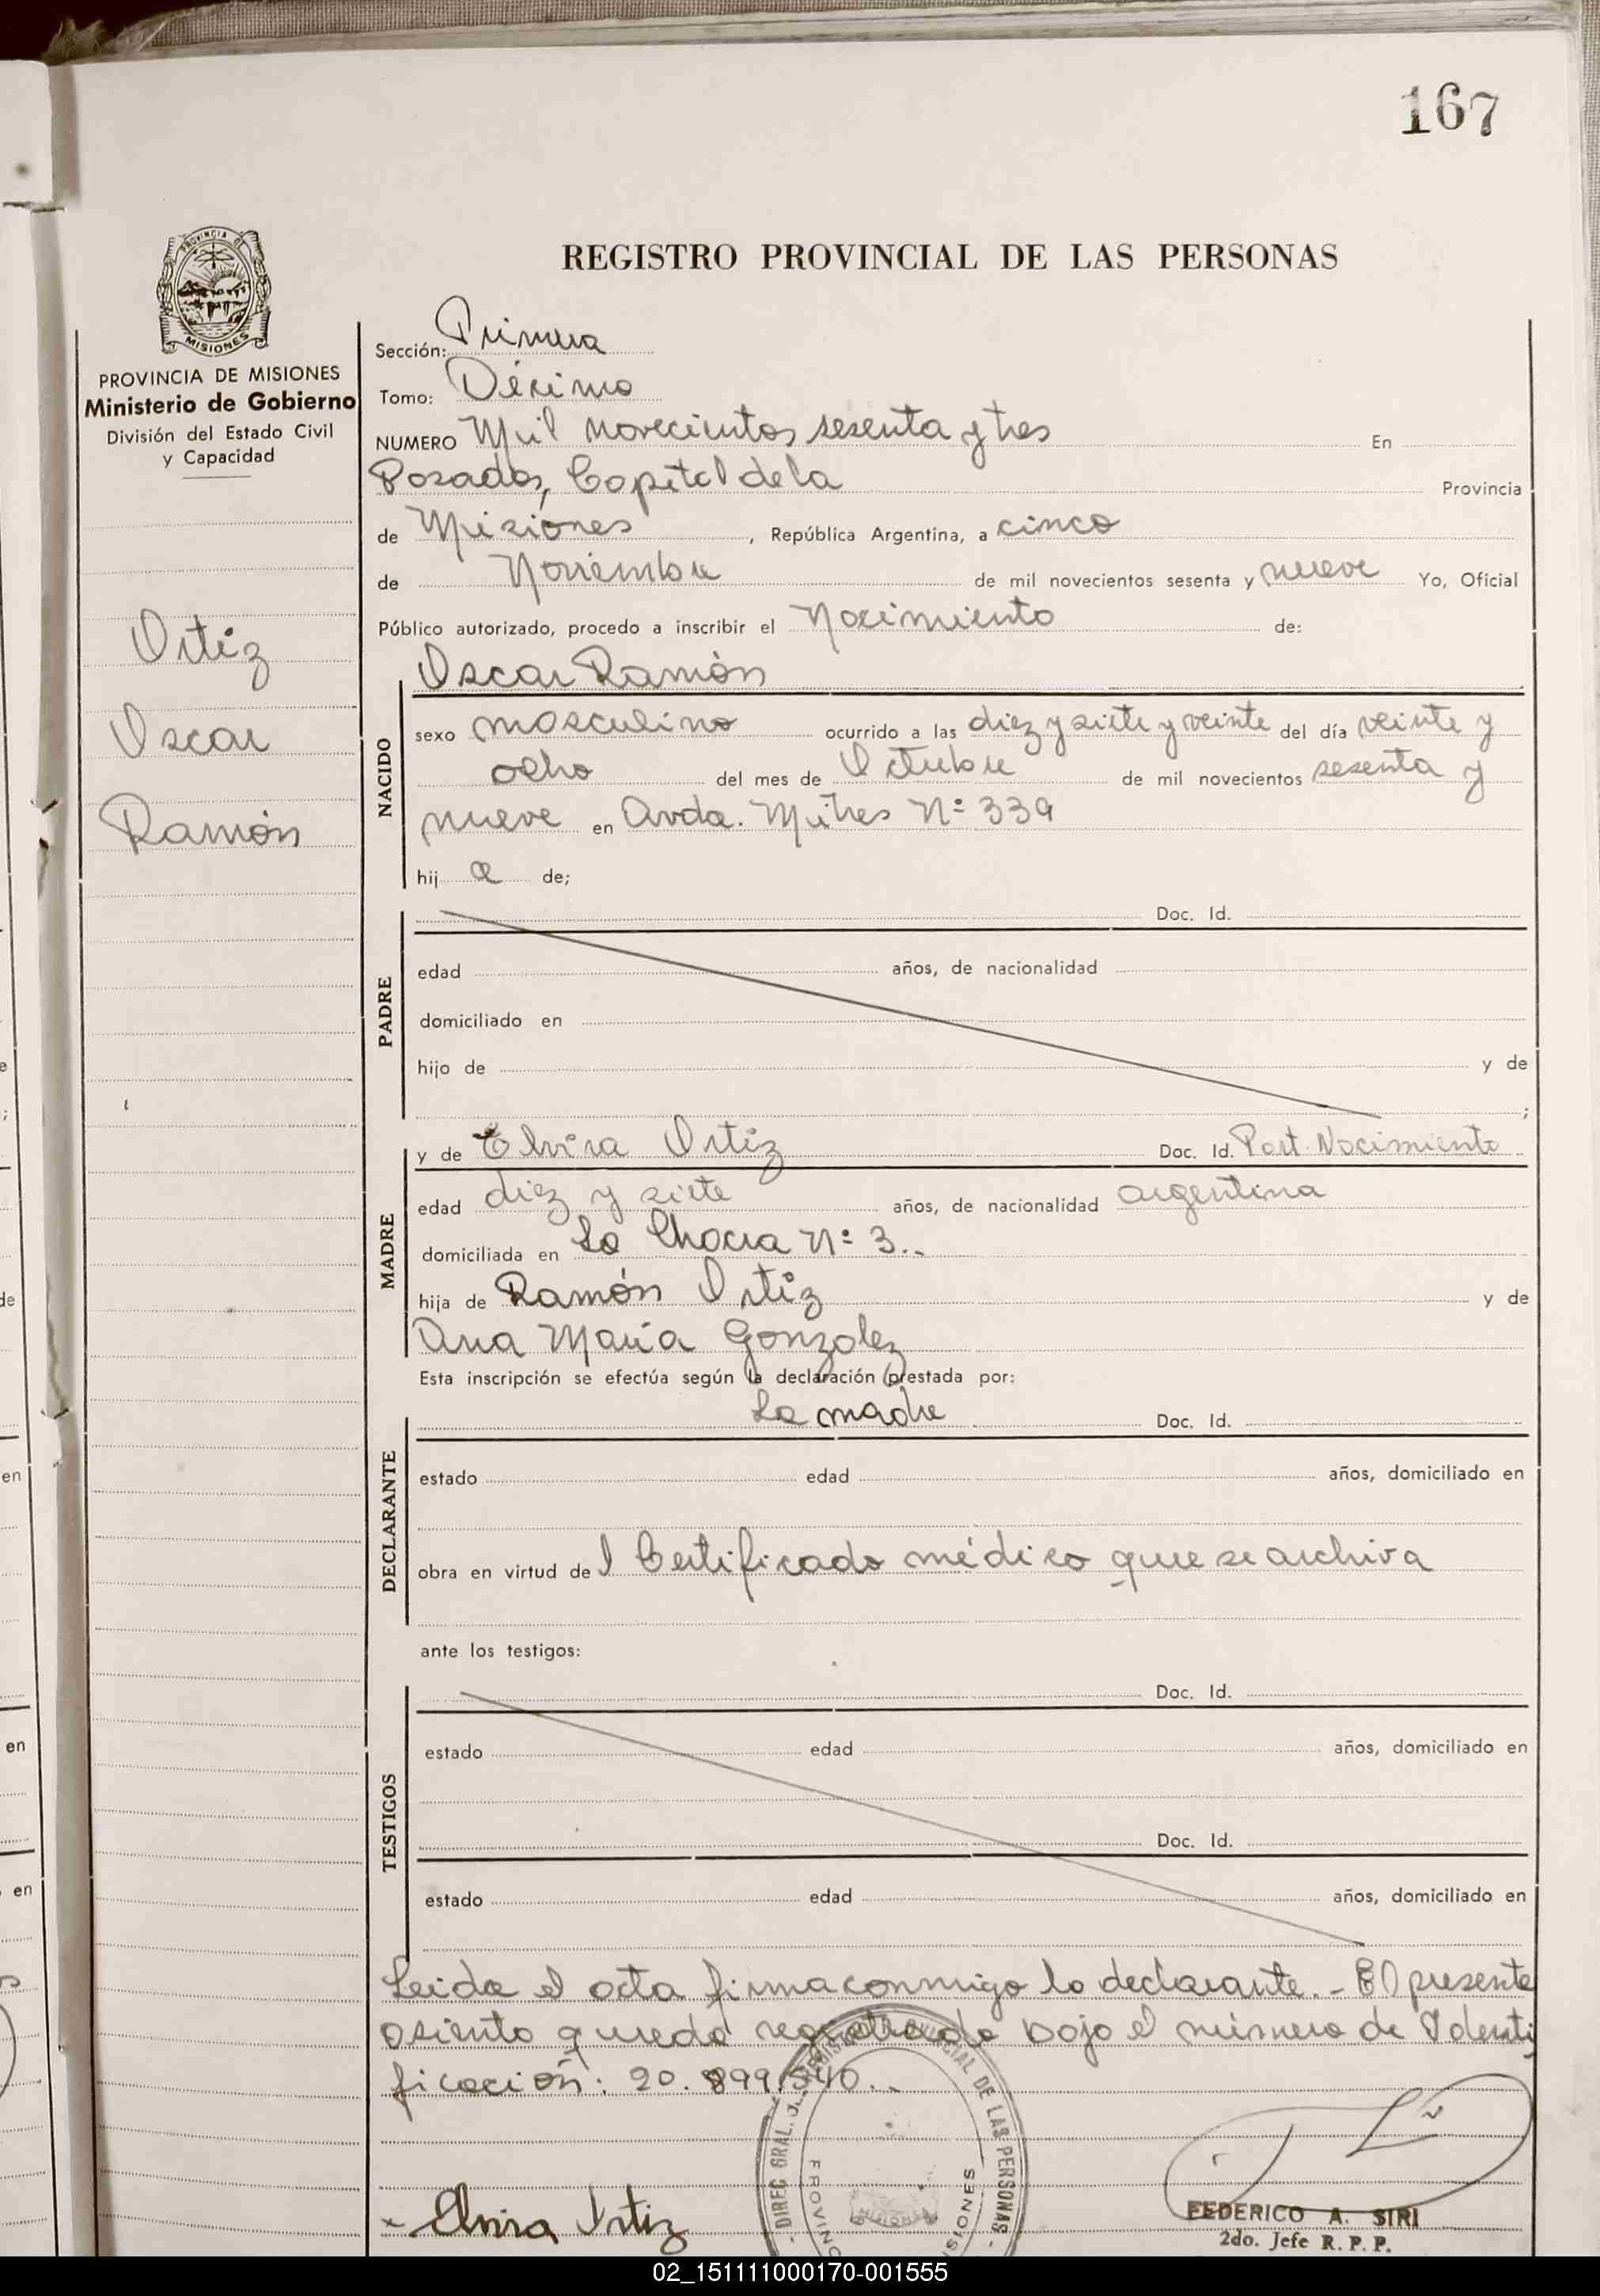 167
REGISTRO PROVINCIAL DE LAS PERSONAS
PROVINCIA DE MISIONES
Ministerio de Gobierno
División del Estado Civil
y Capacidad
Ortiz
Oscar
Ramón
Sección: Primera
Tomo: Décimo
NUMERO Mil novecientos sesenta y tres En
Posadas, Capital de la Provincia
de Misiones, República Argentina, a cinco
de Noviembre de mil novecientos sesenta y nueve Yo, Oficial
Público autorizado, procedo a inscribir el Nacimiento de:
Oscar Ramón
NACIDO
sexo masculino ocurrido a las diez y siete y veinte del día veinte y
ocho del mes de Octubre de mil novecientos sesenta y
nueve en Avda. Mitres Nº 339
hij o de;
PADRE
Doc. Id.
edad años, de nacionalidad
domiciliado en
hijo de y de
;
MADRE
y de Elvira Ortiz Doc. Id. Part. Nacimiento
edad diez y siete años, de nacionalidad argentina
domiciliada en La Chacra Nº 3..
hija de Ramón Ortiz y de
Ana María Gonzalez
Esta inscripción se efectúa según la declaración prestada por:
DECLARANTE
La madre Doc. Id.
estado edad años, domiciliado en
obra en virtud de l Certificado médico que se archiva
ante los testigos:
TESTIGOS
Doc. Id.
estado edad años, domiciliado en
Doc. Id.
estado edad años, domiciliado en
Leida el acta firma conmigo la declarante.- El presente
asiento queda registrado bajo el número de Identi
ficación: 20.899.540..
DIREC GRAL. DE LAS PERSONAS
MISIONES
Elvira Ortiz
FEDERICO A. SIRI
2do. Jefe R. P. P.
02_151111000170-001555